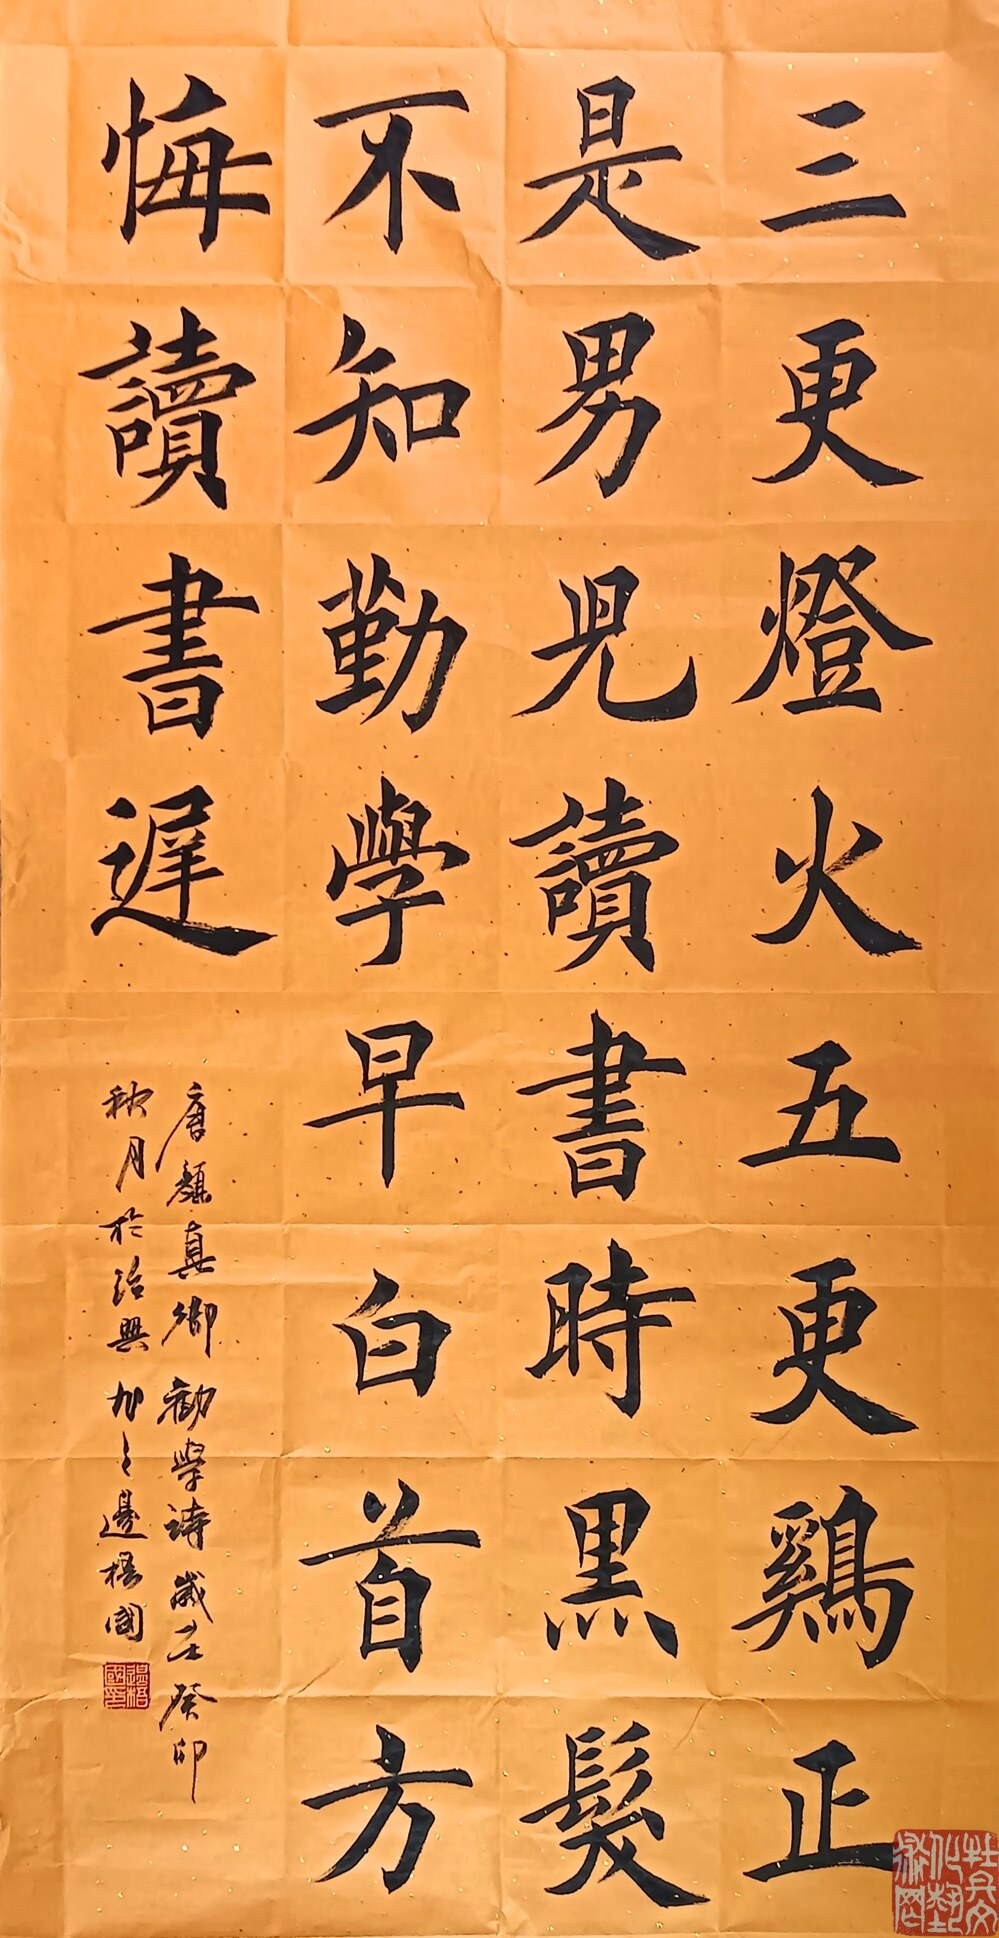 三更燈火五更鷄正
是男児讀書時黑髮
不知勤學早白首方
悔讀書遲
唐顏真卿勸學詩歲在癸卯
秋月於治興 邊梧國
邊梧國印